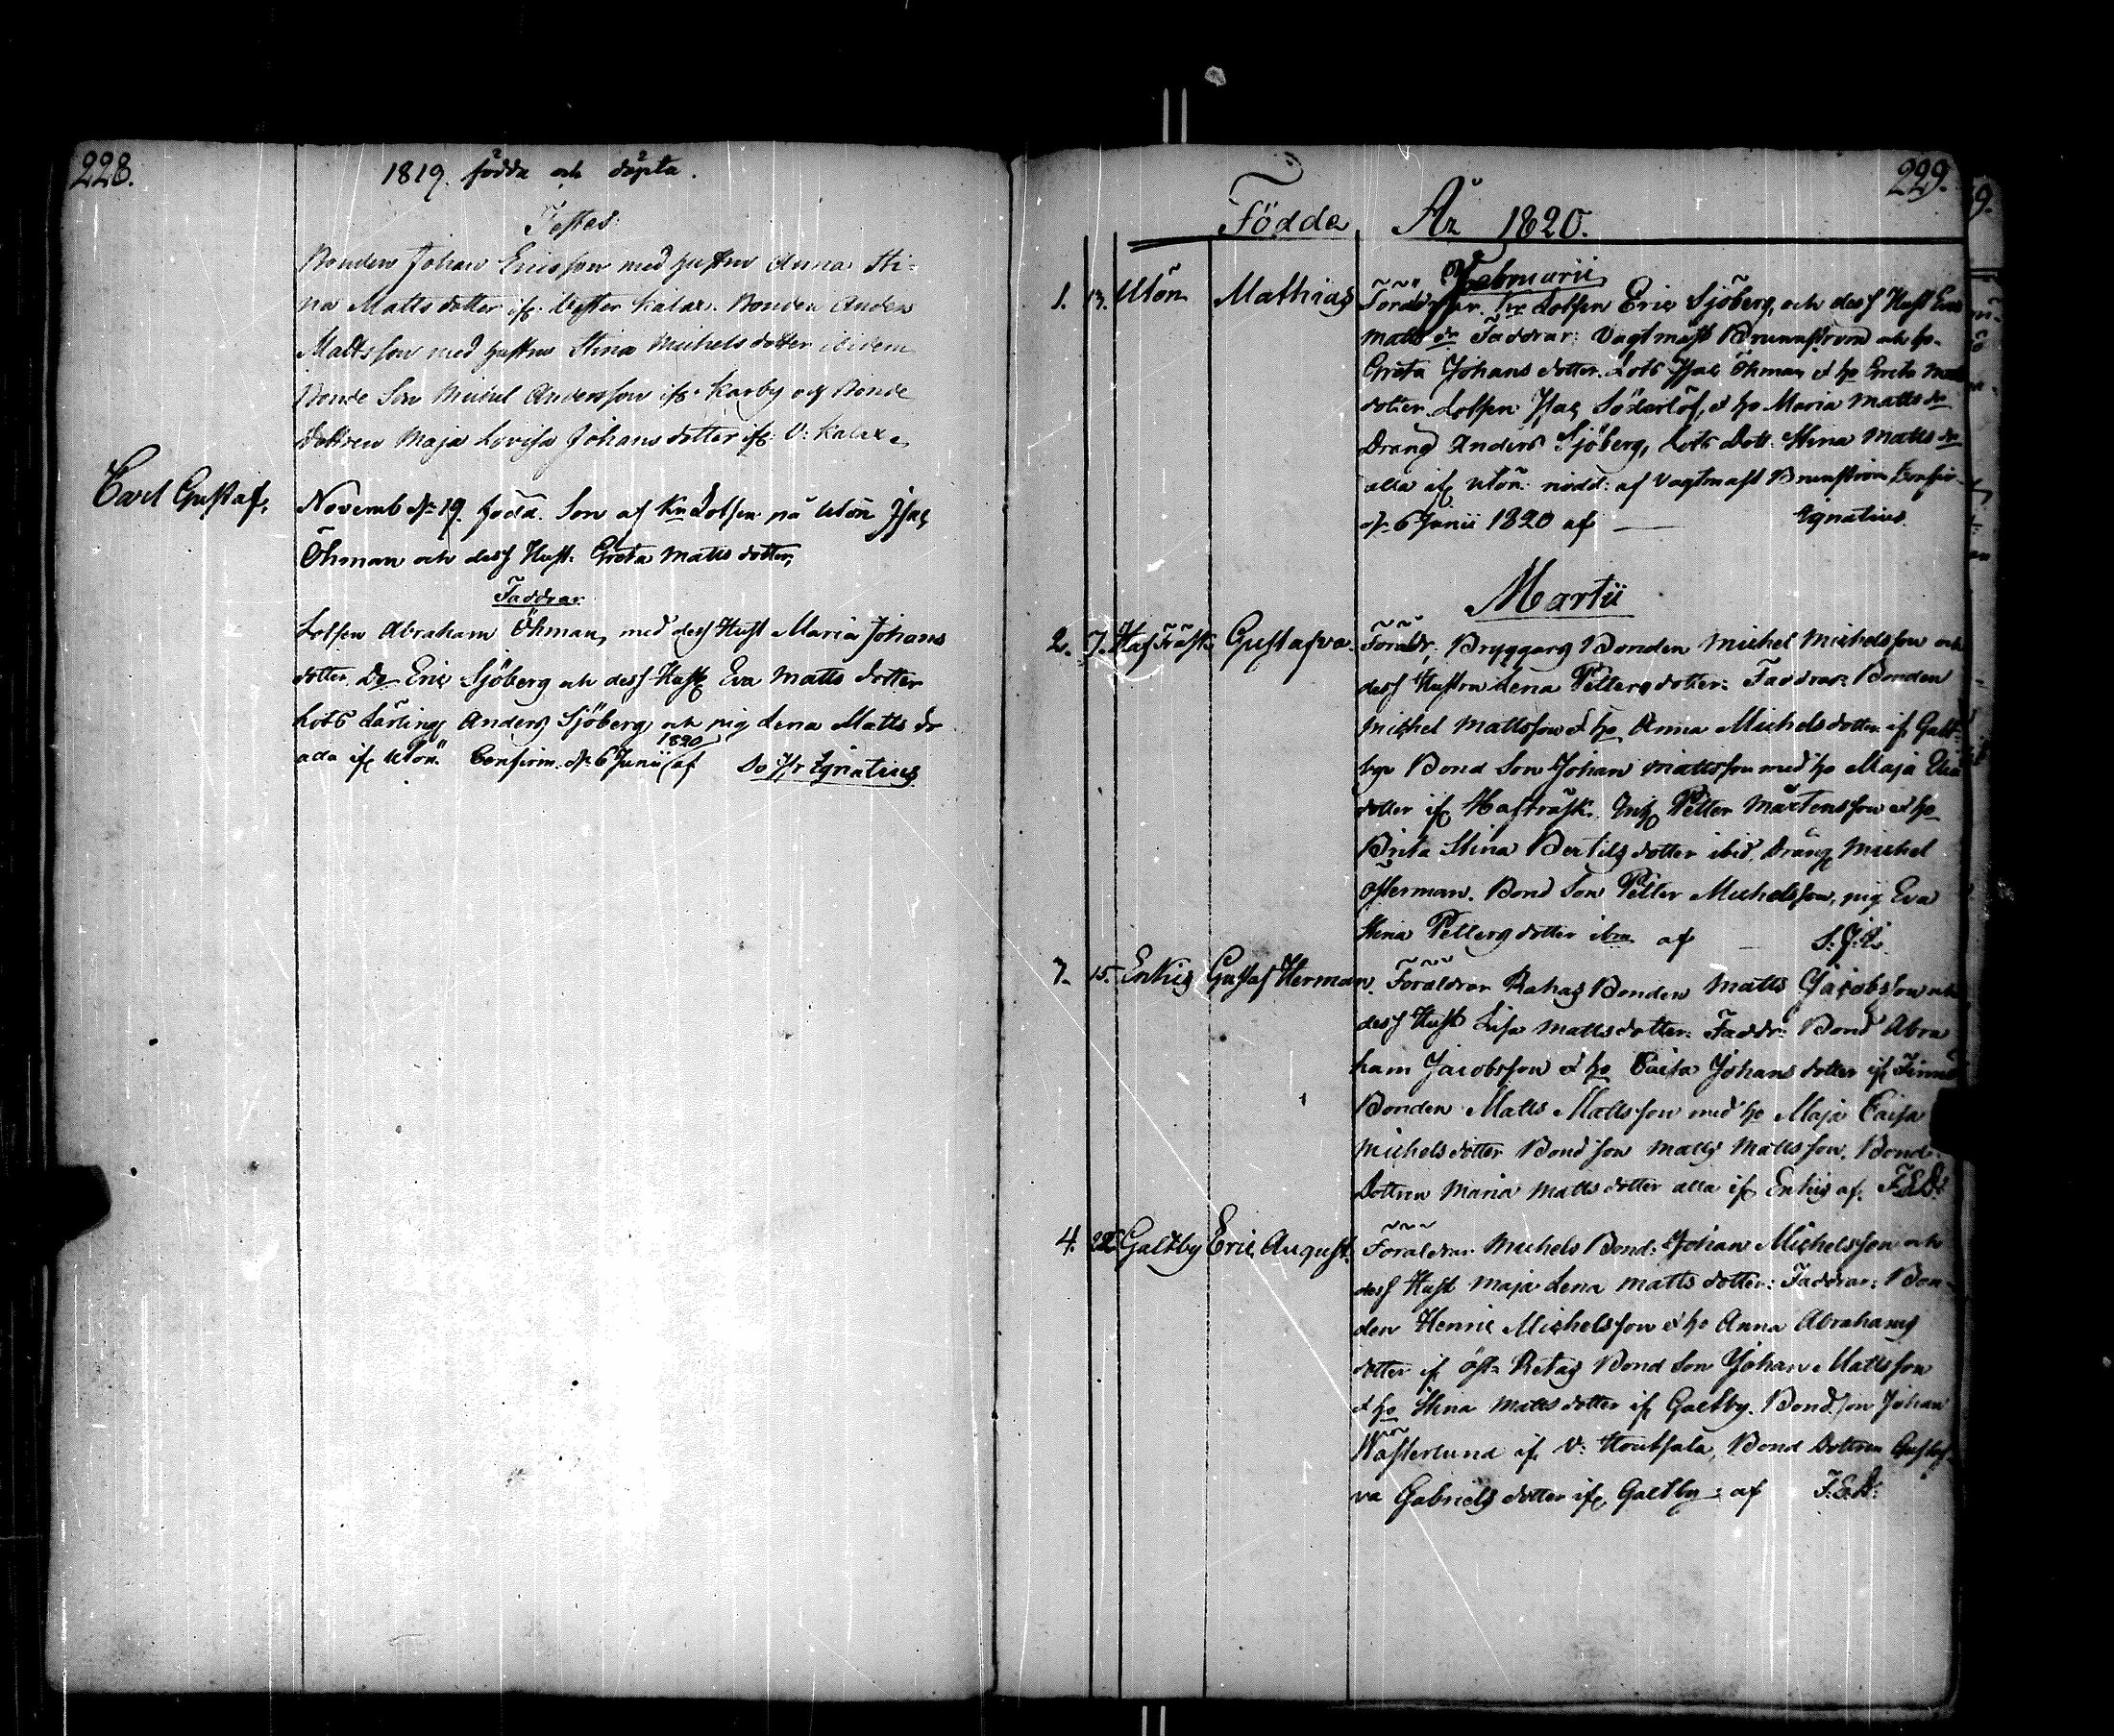 228.
1819. födda och döpta.
Testes:
Bonden Johan Ericsson med hustru Anna Sti-
na Mattsdotter ifr. Vester Kalax. Bonden Anders
Mattsson med hustru Stina Michelsdotter ibidem
Bonde Son Michel Andersson ifr. Karby och Bonde
dottren Maja Lovisa Johansdotter ifr: V: Kalax.
Carl Gustaf,
Novemb d. 19. född. Son af Kr Lotsen på Utön Isac
Öhman och dess Hust. Greta Matts dotter,
Faddrar
Lotsen Abraham Öhman, med dess Hust Maria Johans
dotter. Do Eric Sjöberg och dess Hust Eva Matts dotter
Lots Lärling Anders Sjöberg och pig Lena Matts dr
ada if Utön. Confirm. d. 6 Junii 1820 af Ignatius
229.
Födda År 1820.
Februarii
1. 13. Utön Mathias Föräldrar. Lotsen Eric Sjöberg, och dess Hust Eva
Matts dr Faddrar: Vagtmäst Brunnström och ho
Greta Johans dotter. Lots Isac Öhman & ho Greta Matts
dotter. Lotsen Isac Söderlöf, & ho Maria Matts dr
Dräng Anders Sjöberg, Lots Dott. Stina Matts dr
alla if Utön: nödd: af Vagtmäst Brunström Confir-
d. 6 Junii 1820 af — Ignatius.
Martii
2. 7. Hafträsk Gustafva. Föräldr. Bryggars Bonden Michel Michelsson och
dess Hustru Lena Petters dotter: Faddrar: Bonden
Michel Mattsson & ho Anna Michelsdotter if Galt-
by. Bond Son Johan Mattsson med ho Maja
dotter if Hafträsk. Petter Mårtensson & ho
Brita Stina Bertils dotter ibid. Dräng Michel
Österman. Bond Son Petter Michelsson, pig Eva
Stina Petters dotter ibm af — S.J.I.
7. 15. Enkis Gustaf Herman. Föräldrar Rahas Bonden Matts Jacobsson och
dess Hust Lisa Matts dotter: Faddr: Bond Abra
ham Jacobsson & ho Caisa Johans dotter if Finnö
Bonden Matts Mattsson med ho Maja Caisa
Michelsdotter Bond son Matts Mattsson. Bond
Dottren Maria Matts dotter alla if Enkis af. F.E.D.
4. 22. Galtby Eric August. Föräldrar Michels Bond: Johan Michelsson och
dess Hust Maja Lena Matts dotter: Faddrar: Bon-
den Henric Michelsson & ho Anna Abrahams
dotter if Öst. Retas Bond Son Johan Mattsson
& ho Stina Matts dotter if Galtby. Bond son Johan
Wästerlund if V: Houtsala, Bond Dottren Gustaf-
va Gabriels dotter if Galtby: af F.E.D.